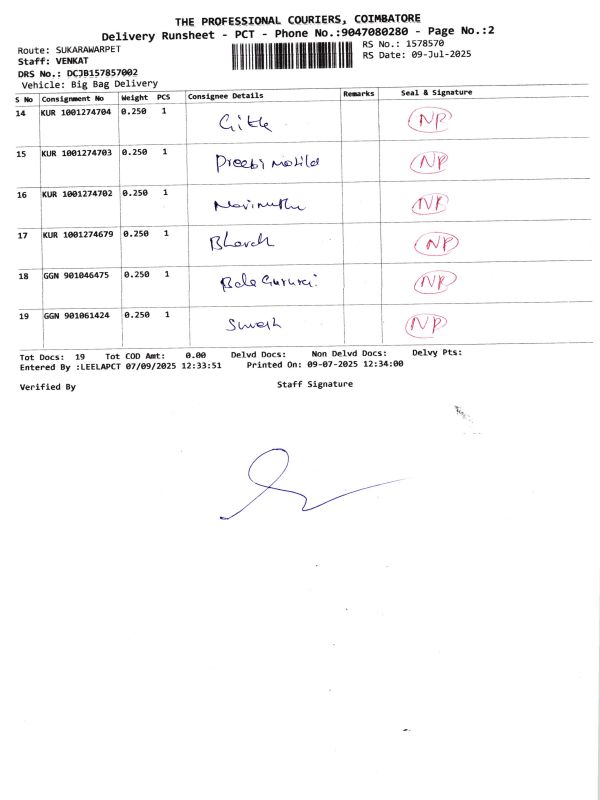 THE PROFESSIONAL COURIERS, COIMBATORE
Delivery Runsheet - PCT - Phone No.:9047080280 - Page No.:2
Route: SUKARAWARPET
RS No.: 1578570
Staff: VENKAT
RS Date: 09-Jul-2025
DRS No.: DCJB157857002
Vehicle: Big Bag Delivery
S No Consignment No Weight PCS Consignee Details Remarks Seal & Signature
14 KUR 1001274704 0.250 1 NP
15 KUR 1001274703 0.250 1 NP
16 KUR 1001274702 0.250 1 NP
17 KUR 1001274679 0.250 1 Bharath NP
18 GGN 901046475 0.250 1 NP
19 GGN 901061424 0.250 1 NP
Tot Docs: 19 Tot COD Amt: 0.00 Delvd Docs: Non Delvd Docs: Delvy Pts:
Entered By :LEELAPCT 07/09/2025 12:33:51 Printed On: 09-07-2025 12:34:00
Verified By Staff Signature